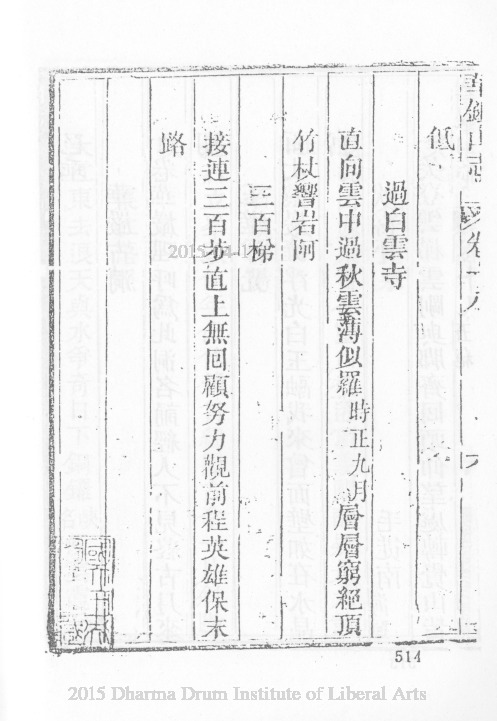 低
過白雲寺
直向雲中過秋雲薄似羅時正九月層層窮絕頂
竹杖響岩阿
三百梯
接連三百步直上無回顧努力觀前程英雄保末
路
514
2015 Dharma Drum Institute of Liberal Arts